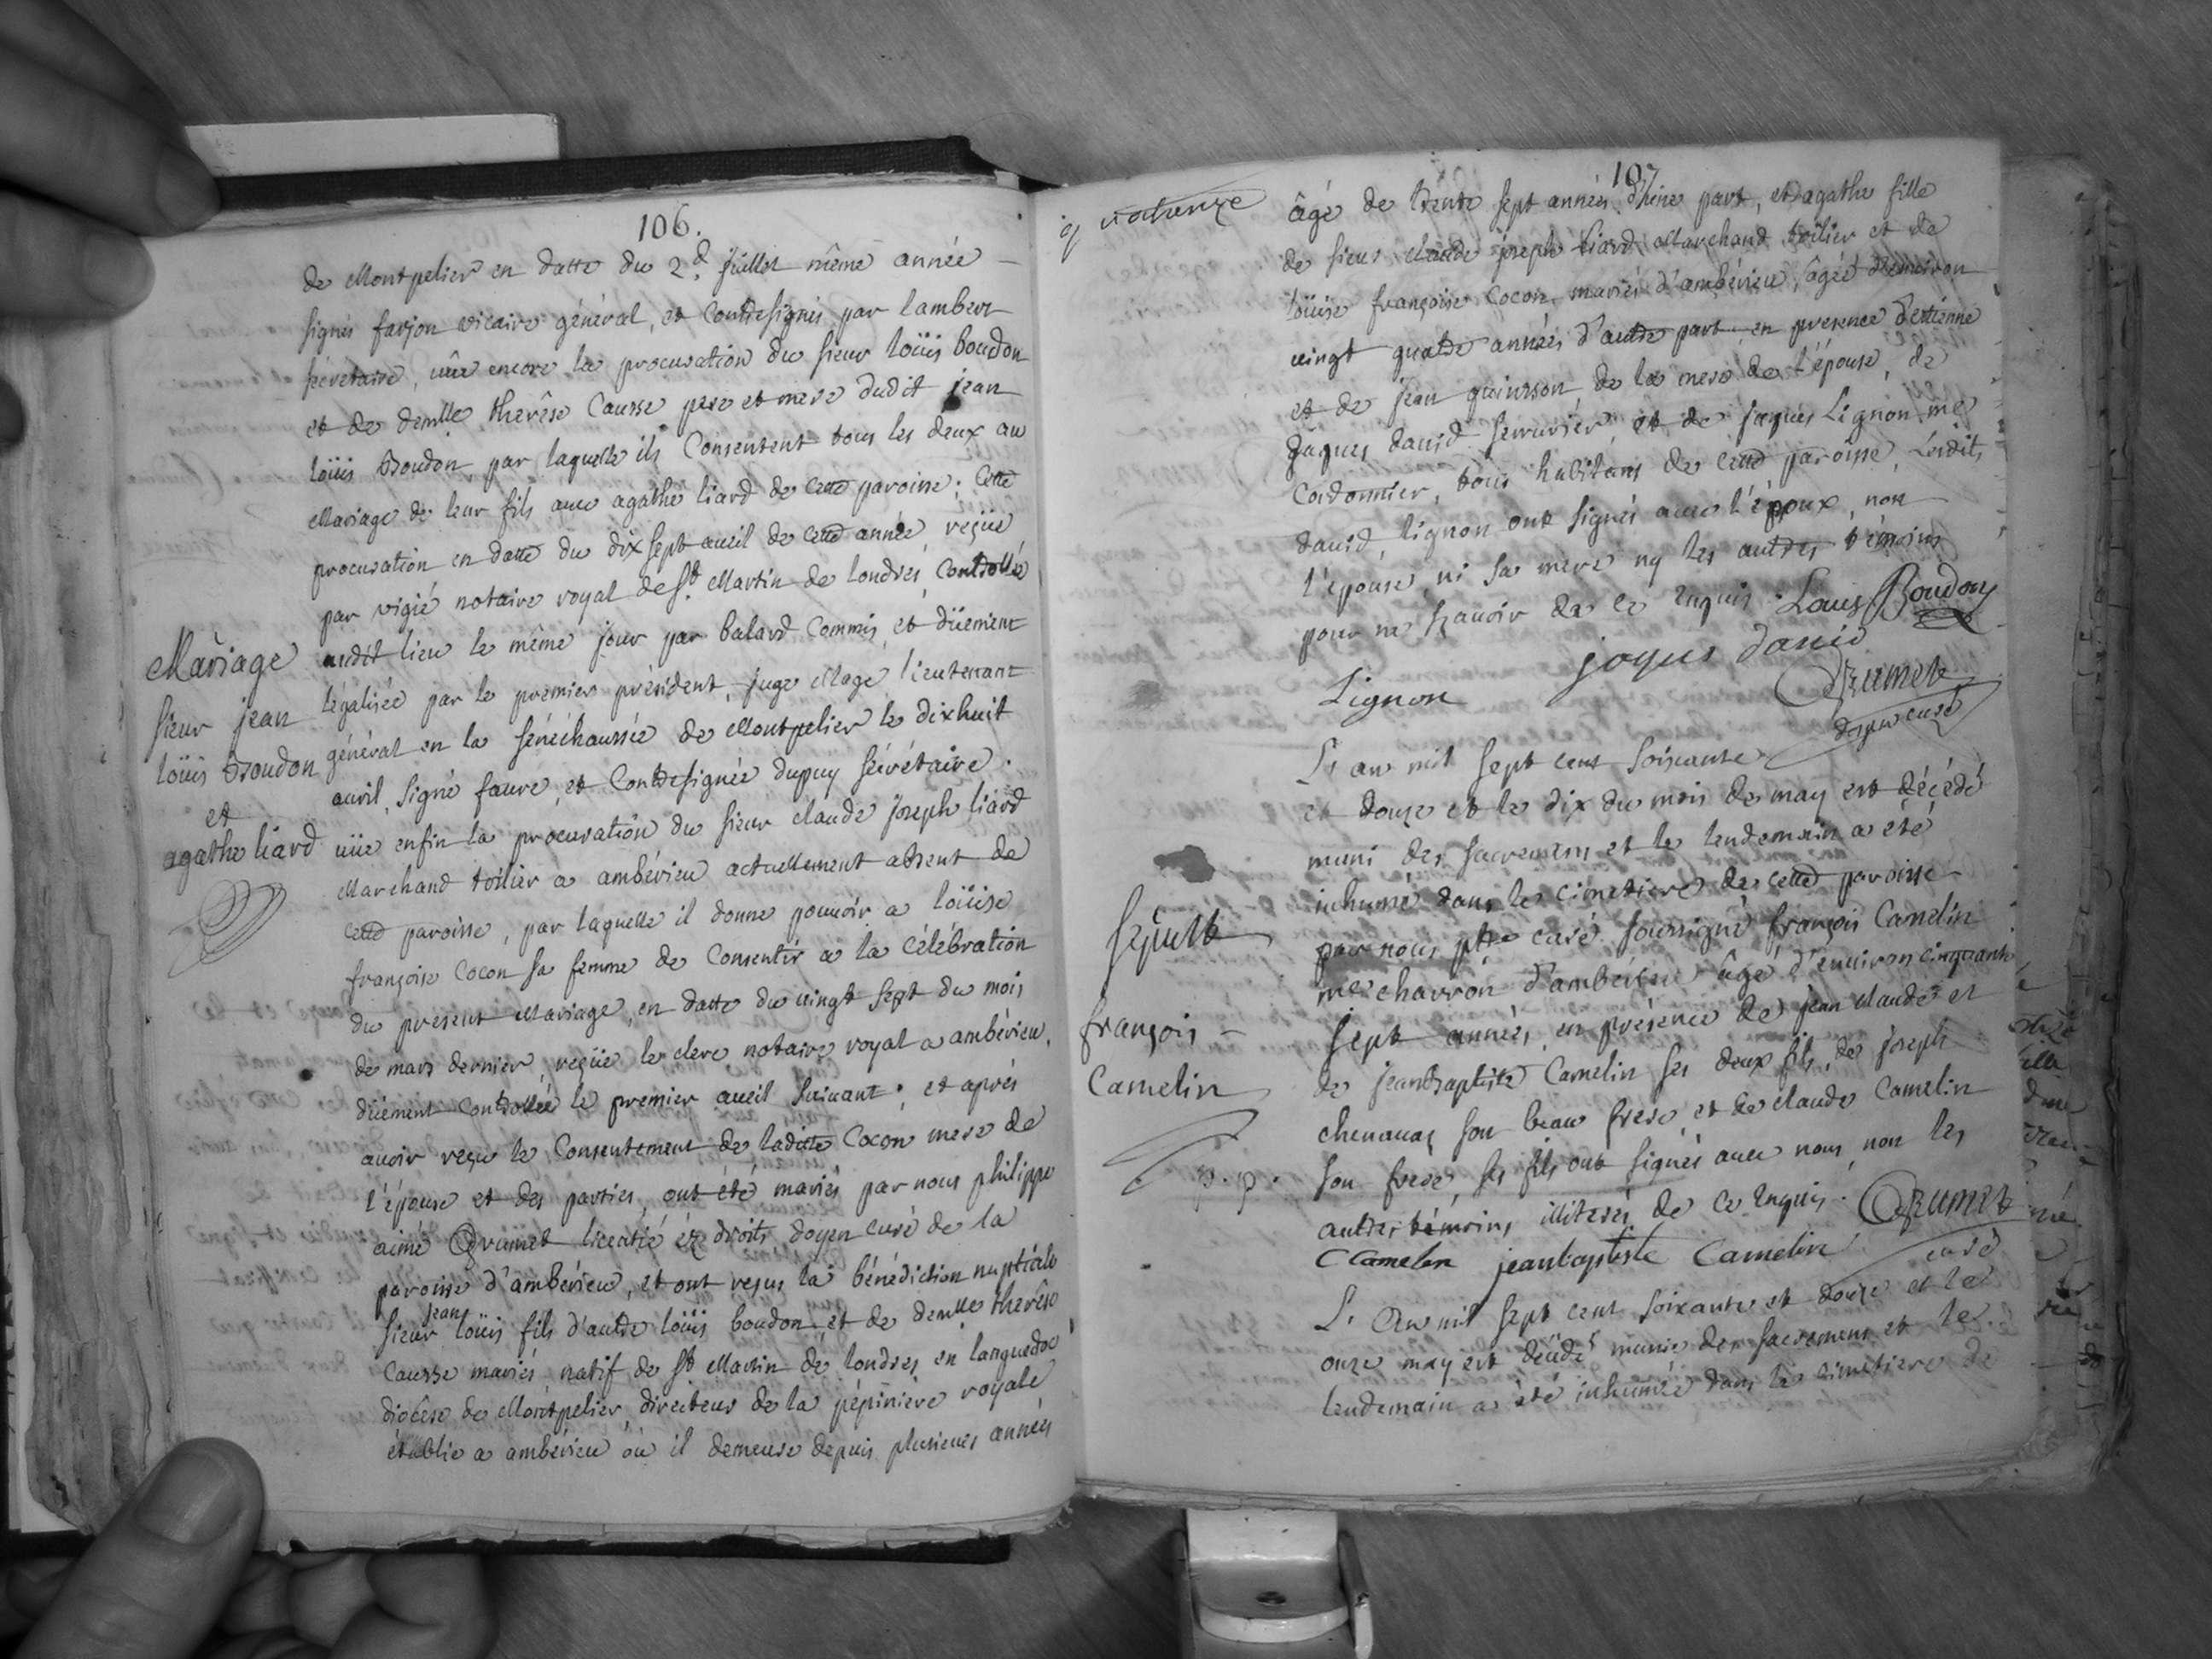 106.
de Montpelier en datte du 2.d juillet même année
signés farjon vicaire général, et contresignés par lambert
sécrétaire, vüe encore la procuration du sieur loüis boudon
et de demlle therêse Causse pere et mere dudit jean
loüis Boudon, par laquelle ils Consentent tous les deux au
Mariage de leur fils avec agathe liard de cette paroisse; Cette
procuration en datte du dix sept avril de cette année, reçüe
par vigié notaire royal de St. Martin de londres, Controllé
audit lieu le même jour par balard Commis, et düement
légalisée par le premier président, juge Mage, lieutenant
général en la sénéchaussée de Montpelier le dixhuit
avril, signé faure, et Contresignée dupuy sécrétaire.
vüe enfin la procuration du sieur claude joseph liard
Marchand toilier a ambérieu actuellement absent de
cette paroisse, par laquelle il donne pouvoir a loüise
françoise Cocon sa femme de Consentir a la célébration
du present Mariage, en datte du vingt sept du mois
de mars dernier, reçüe le clerc notaire royal a ambérieu,
düement controllée le premier avril suivant; et aprés
avoir reçu le Consentement de laditte Cocon mere de
l'épouse et des parties, ont été mariés par nous philippe
aimé Grumet licentié éz droits doyen curé de la
paroisse d'ambérieu, et ont reçus la bénédiction nuptiale
jean
sieur loüis fils d'autre loüis boudon et de demlle therêse
Causse mariés, natif de St Martin de londres en languedoc
diocêse de Montpelier, directeur de la pépinière royale
établie a ambérieu où il demeure depuis plusieurs années
Mariage
sieur jean
loüis Boudon
et
agathe liard
107
âgé de trente sept années d'hune part, et agathe fille
de sieur claude joseph liard Marchand toilier et de
loüise françoise Cocon mariés d'ambérieu, âgée d'environ
vingt quatre années d'autre part, en presence d'estienne
et de jean guinsson, de la mere de l'épouse, de
jaques david serrurier et de jaques Lignon me
Cordonnier, tous habitans de cette paroisse, lesdits
david, lignon ont signés avec l'époux, non
l'épouse, ni sa mere ny les autres témoins
pour ne sçavoir de ce enquis. Louis Boudon
Lignon
jaques david
Grumet
doyen curé
L'an mil sept cent soixante
et douze et le dix du mois de may est décédé
muni des sacremens et le lendemain a été
inhumé dans le cimetiere de cette paroisse
par nous ptre curé soussigné françois Camelin
me charron d'ambérieu âgé d'environ cinquante
sept années, en présence de jean claude et
de jeanbaptiste Camelin ses deux fils, de joseph
chenavas son beau frere, et de claude Camelin
son frere, ses fils ont signés avec nous, non les
autres témoins illiterés de ce enquis. Grumet
curé
C Camelin jeanbaptiste Camelin
L'an mil sept cent soixante et douze et le
onze may est décédé munie des sacremens et le
lendemain a été inhumée dans le cimetiere de
sepult
françois
Camelin
p. p.